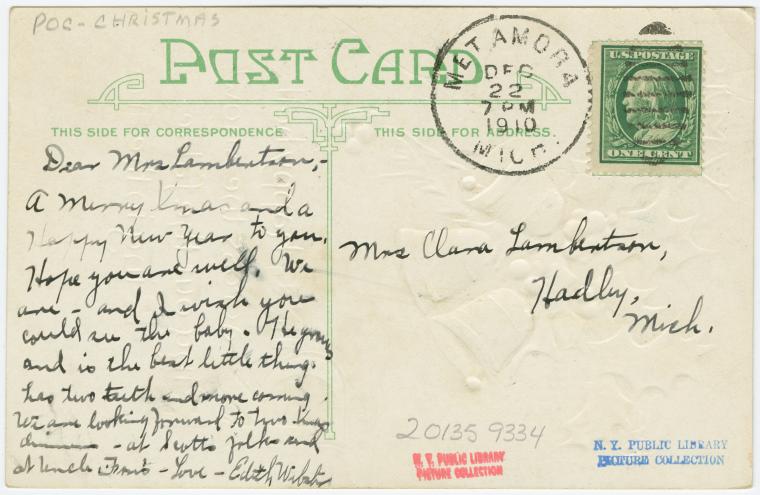 POC - CHRISTMAS
POST CARD
THIS SIDE FOR CORRESPONDENCE.
THIS SIDE FOR ADDRESS.
METAMORA
DEC
22
7 PM
1910
MICH.
U.S. POSTAGE
ONE CENT
Dear Mrs Lambertson,-
A Merry Xmas and a
Happy New Year to you.
Hope you are well. We
are - and I wish you
could see the baby. He grows
and is the best little thing.
has two teeth and more coming.
We are looking forward to two
- at Scotts folks and
at Uncle - Love - Edith Webster
Mrs Clara Lambertson,
Hadley,
Mich.
20135 9334
N. Y. PUBLIC LIBRARY
PICTURE COLLECTION
N. Y. PUBLIC LIBRARY
PICTURE COLLECTION